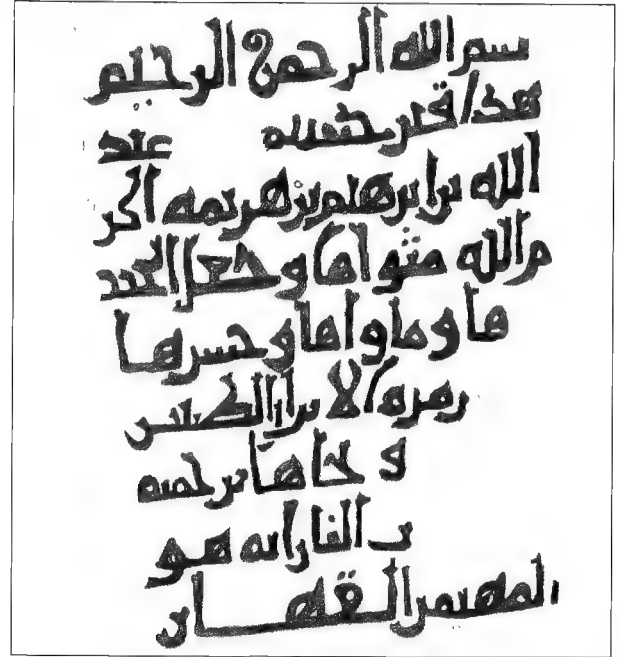 سم الله الرحمن الرحيم
هذا قبر عبد
الله بن ابرهيم بن هريمه اكر
م الله مثواها وجعل
ها وماواها وحسرها
زمره الابرار
و نجاها برحمته
النار انه هو
المهيمن القهار